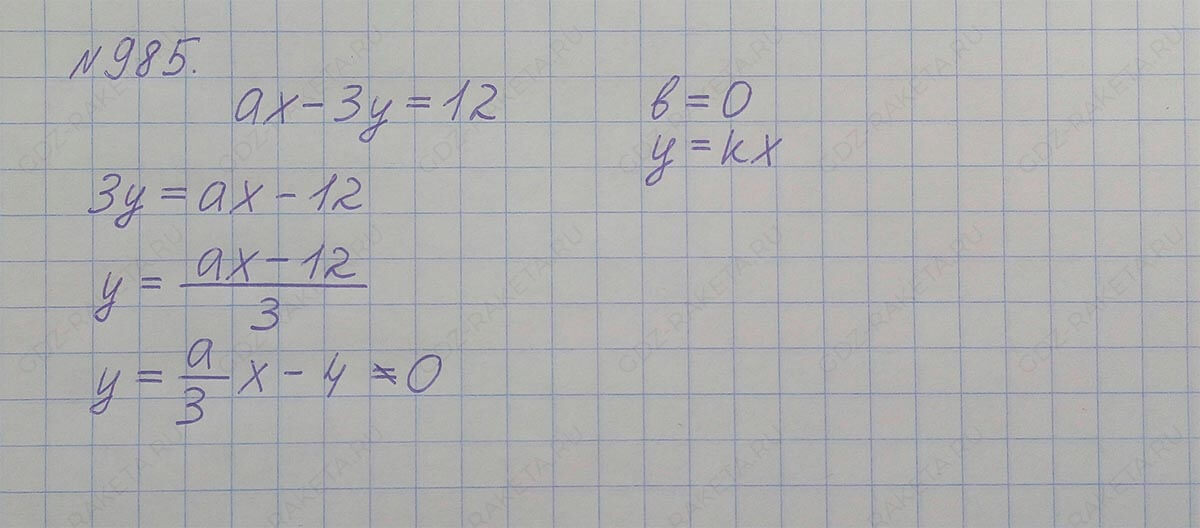 №985.
ax-3y=12
b=0
y=kx
3y=ax-12
y=\frac{ax-12}{3}
y=\frac{a}{3}x-4≠0
GDZ-RAKETA.RU